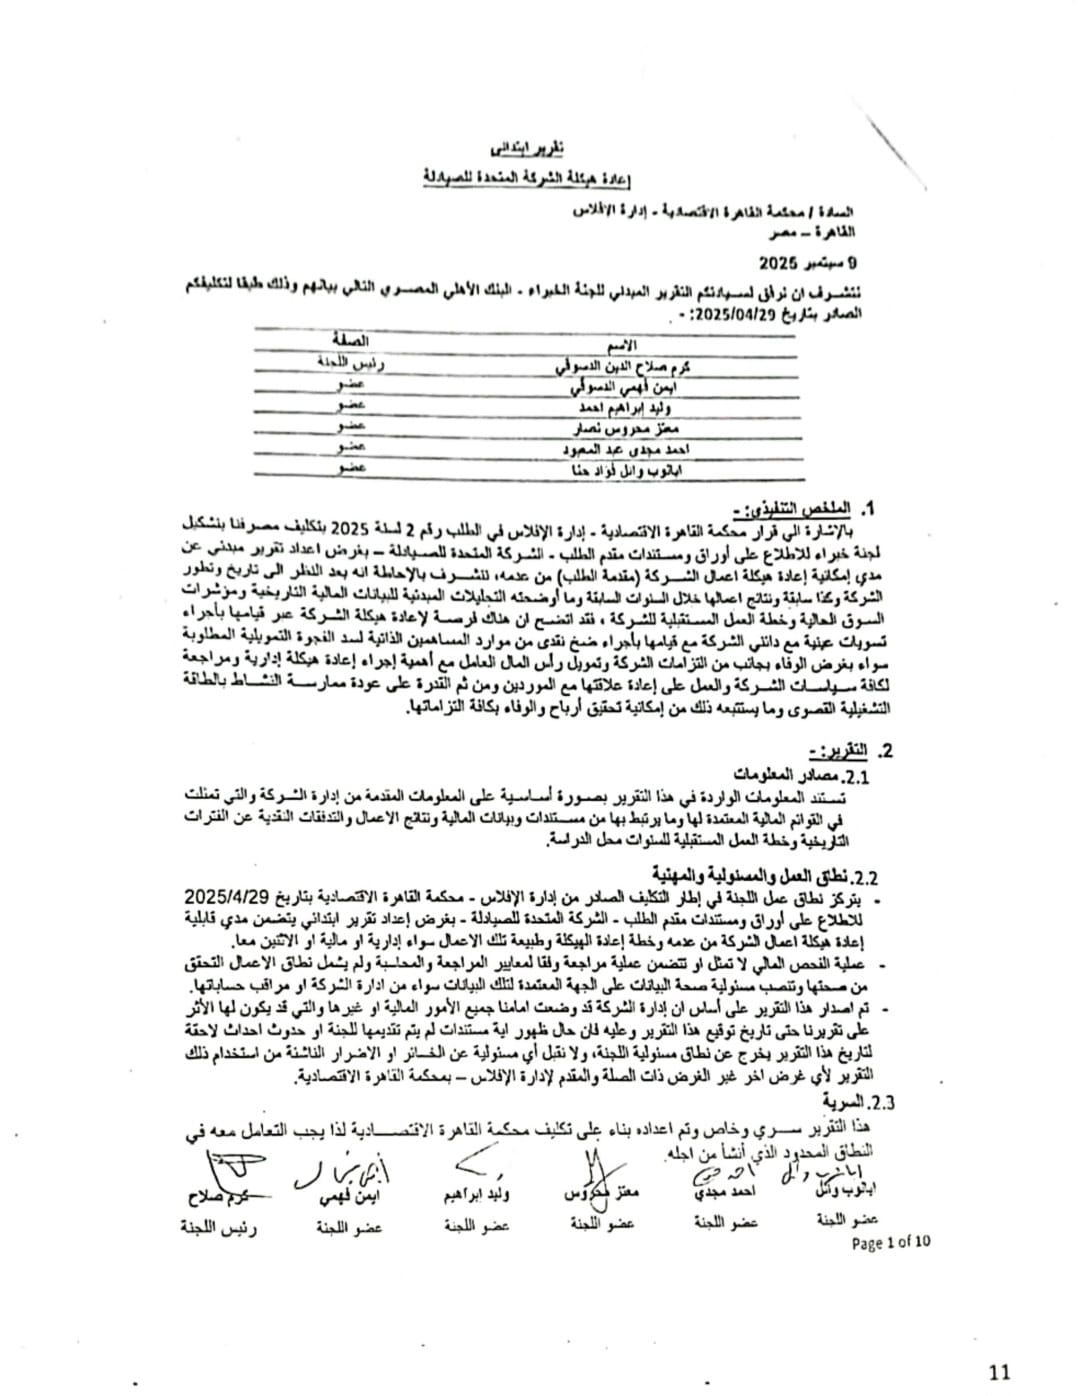 تقرير ابتدائي
إعادة هيكلة الشركة المتحدة للصيادلة
السادة / محكمة القاهرة الاقتصادية - إدارة الإفلاس
القاهرة – مصر
9 سبتمبر 2025
نتشرف ان نرفق لسيادتكم التقرير المبدئي للجنة الخبراء - البنك الأهلي المصري التالي بيانهم وذلك طبقا لتكليفكم
الصادر بتاريخ 2025/04/29: -
الاسم الصفة
كرم صلاح الدين الدسوقي رئيس اللجنة
ايمن فهمي الدسوقي عضو
وليد إبراهيم احمد عضو
معتز محروس نصار عضو
احمد مجدي عبد المعبود عضو
ابانوب وائل فؤاد حنا عضو
1. الملخص التنفيذي: -
بالإشارة الي قرار محكمة القاهرة الاقتصادية - إدارة الإفلاس في الطلب رقم 2 لسنة 2025 بتكليف مصرفنا بتشكيل
لجنة خبراء للاطلاع على أوراق ومستندات مقدم الطلب - الشركة المتحدة للصيادلة – بغرض اعداد تقرير مبدئي عن
مدي إمكانية إعادة هيكلة اعمال الشركة (مقدمة الطلب) من عدمه، نتشرف بالإحاطة انه بعد النظر الى تاريخ وتطور
الشركة وكذا سابقة ونتائج اعمالها خلال السنوات السابقة وما أوضحته التحليلات المبدئية للبيانات المالية التاريخية ومؤشرات
السوق الحالية وخطة العمل المستقبلية للشركة ، فقد اتضح ان هناك فرصة لإعادة هيكلة الشركة عبر قيامها بأجراء
تسويات عينية مع دائني الشركة مع قيامها بأجراء ضخ نقدى من موارد المساهمين الذاتية لسد الفجوة التمويلية المطلوبة
سواء بغرض الوفاء بجانب من التزامات الشركة وتمويل رأس المال العامل مع أهمية إجراء إعادة هيكلة إدارية ومراجعة
لكافة سياسات الشركة والعمل على إعادة علاقتها مع الموردين ومن ثم القدرة على عودة ممارسة النشاط بالطاقة
التشغيلية القصوى وما يستتبعه ذلك من إمكانية تحقيق أرباح والوفاء بكافة التزاماتها.
2. التقرير: -
2.1. مصادر المعلومات
تستند المعلومات الواردة في هذا التقرير بصورة أساسية على المعلومات المقدمة من إدارة الشركة والتي تمثلت
في القوائم المالية المعتمدة لها وما يرتبط بها من مستندات وبيانات المالية ونتائج الاعمال والتدفقات النقدية عن الفترات
التاريخية وخطة العمل المستقبلية للسنوات محل الدراسة.
2.2. نطاق العمل والمسئولية والمهنية
- يتركز نطاق عمل اللجنة في إطار التكليف الصادر من إدارة الإفلاس - محكمة القاهرة الاقتصادية بتاريخ 2025/4/29
للاطلاع على أوراق ومستندات مقدم الطلب - الشركة المتحدة للصيادلة - بغرض إعداد تقرير ابتدائي يتضمن مدي قابلية
إعادة هيكلة اعمال الشركة من عدمه وخطة إعادة الهيكلة وطبيعة تلك الاعمال سواء إدارية او مالية او الاثنين معا.
- عملية الفحص المالي لا تمثل او تتضمن عملية مراجعة وفقا لمعايير المراجعة والمحاسبة ولم يشمل نطاق الاعمال التحقق
من صحتها وتنصب مسئولية صحة البيانات على الجهة المعتمدة لتلك البيانات سواء من ادارة الشركة او مراقب حساباتها.
- تم اصدار هذا التقرير على أساس ان إدارة الشركة قد وضعت امامنا جميع الأمور المالية او غيرها والتي قد يكون لها الأثر
على تقريرنا حتى تاريخ توقيع هذا التقرير وعليه فان حال ظهور اية مستندات لم يتم تقديمها للجنة او حدوث احداث لاحقة
لتاريخ هذا التقرير يخرج عن نطاق مسئولية اللجنة، ولا نقبل أي مسئولية عن الخسائر او الاضرار الناشئة من استخدام ذلك
التقرير لأي غرض اخر غير الغرض ذات الصلة والمقدم لإدارة الإفلاس – بمحكمة القاهرة الاقتصادية.
2.3. السرية
هذا التقرير سري وخاص وتم اعداده بناء على تكليف محكمة القاهرة الاقتصادية لذا يجب التعامل معه في
النطاق المحدود الذي أنشأ من اجله.
ابانوب وائل احمد مجدي معتز محروس وليد ابراهيم ايمن فهمي كرم صلاح
عضو اللجنة عضو اللجنة عضو اللجنة عضو اللجنة عضو اللجنة رئيس اللجنة
Page 1 of 10
11